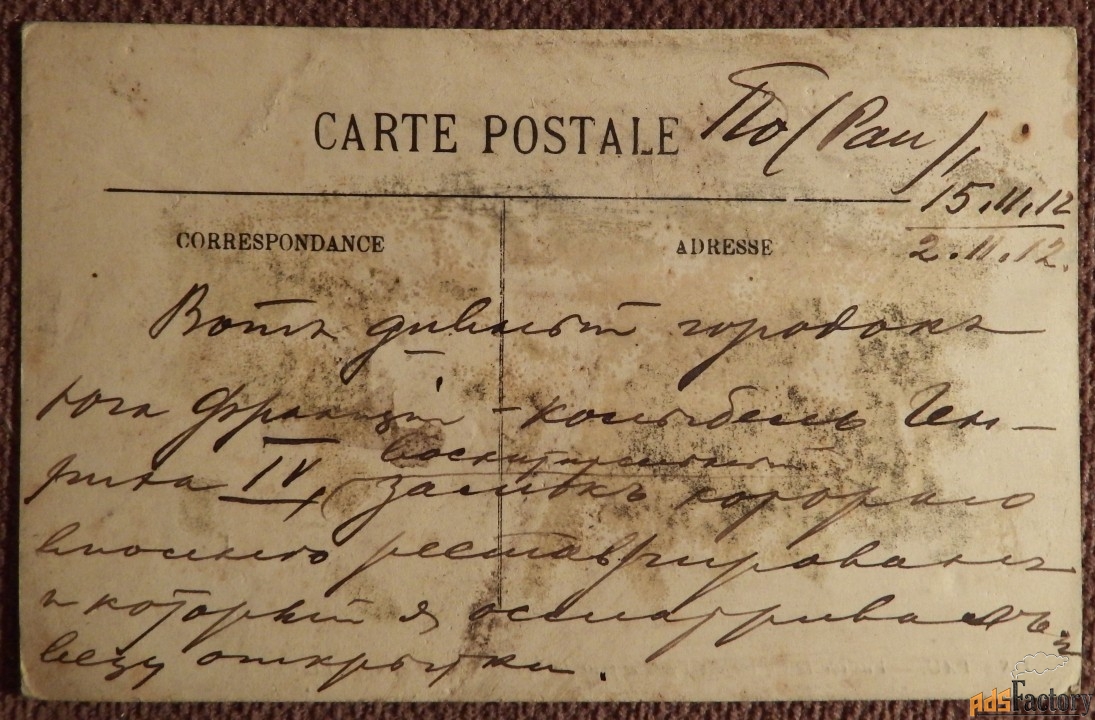 CARTE POSTALE По (Pau)
15.11.12
2.11.12.
CORRESPONDANCE
ADRESSE
Вотъ дивный городокъ
юга Франціи – колыбель Ген–
риха IV, восхитительный
замокъ котораго
вполнѣ реставрированъ
и который я осматривалъ
везу открытки.
AdsFactory